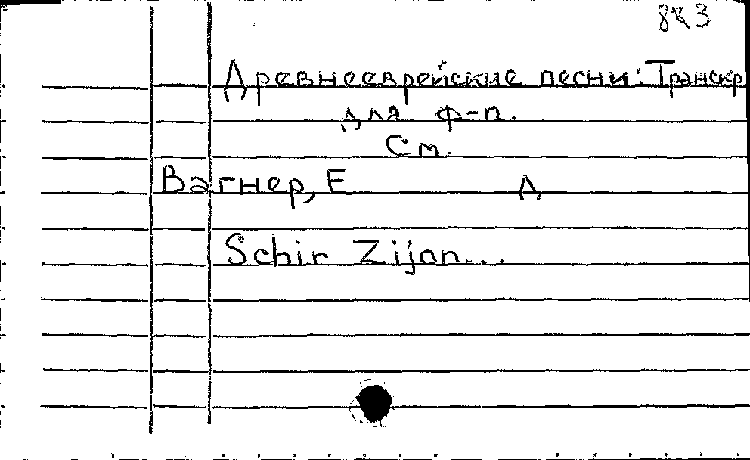 Древнееврейские песни: Транскр
для ф-п.
См.
Вагнер, Е Д
Schir Zijon...